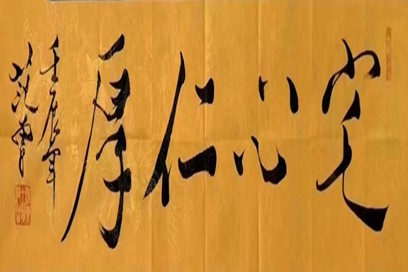 宅心仁厚
壬辰年
范曾